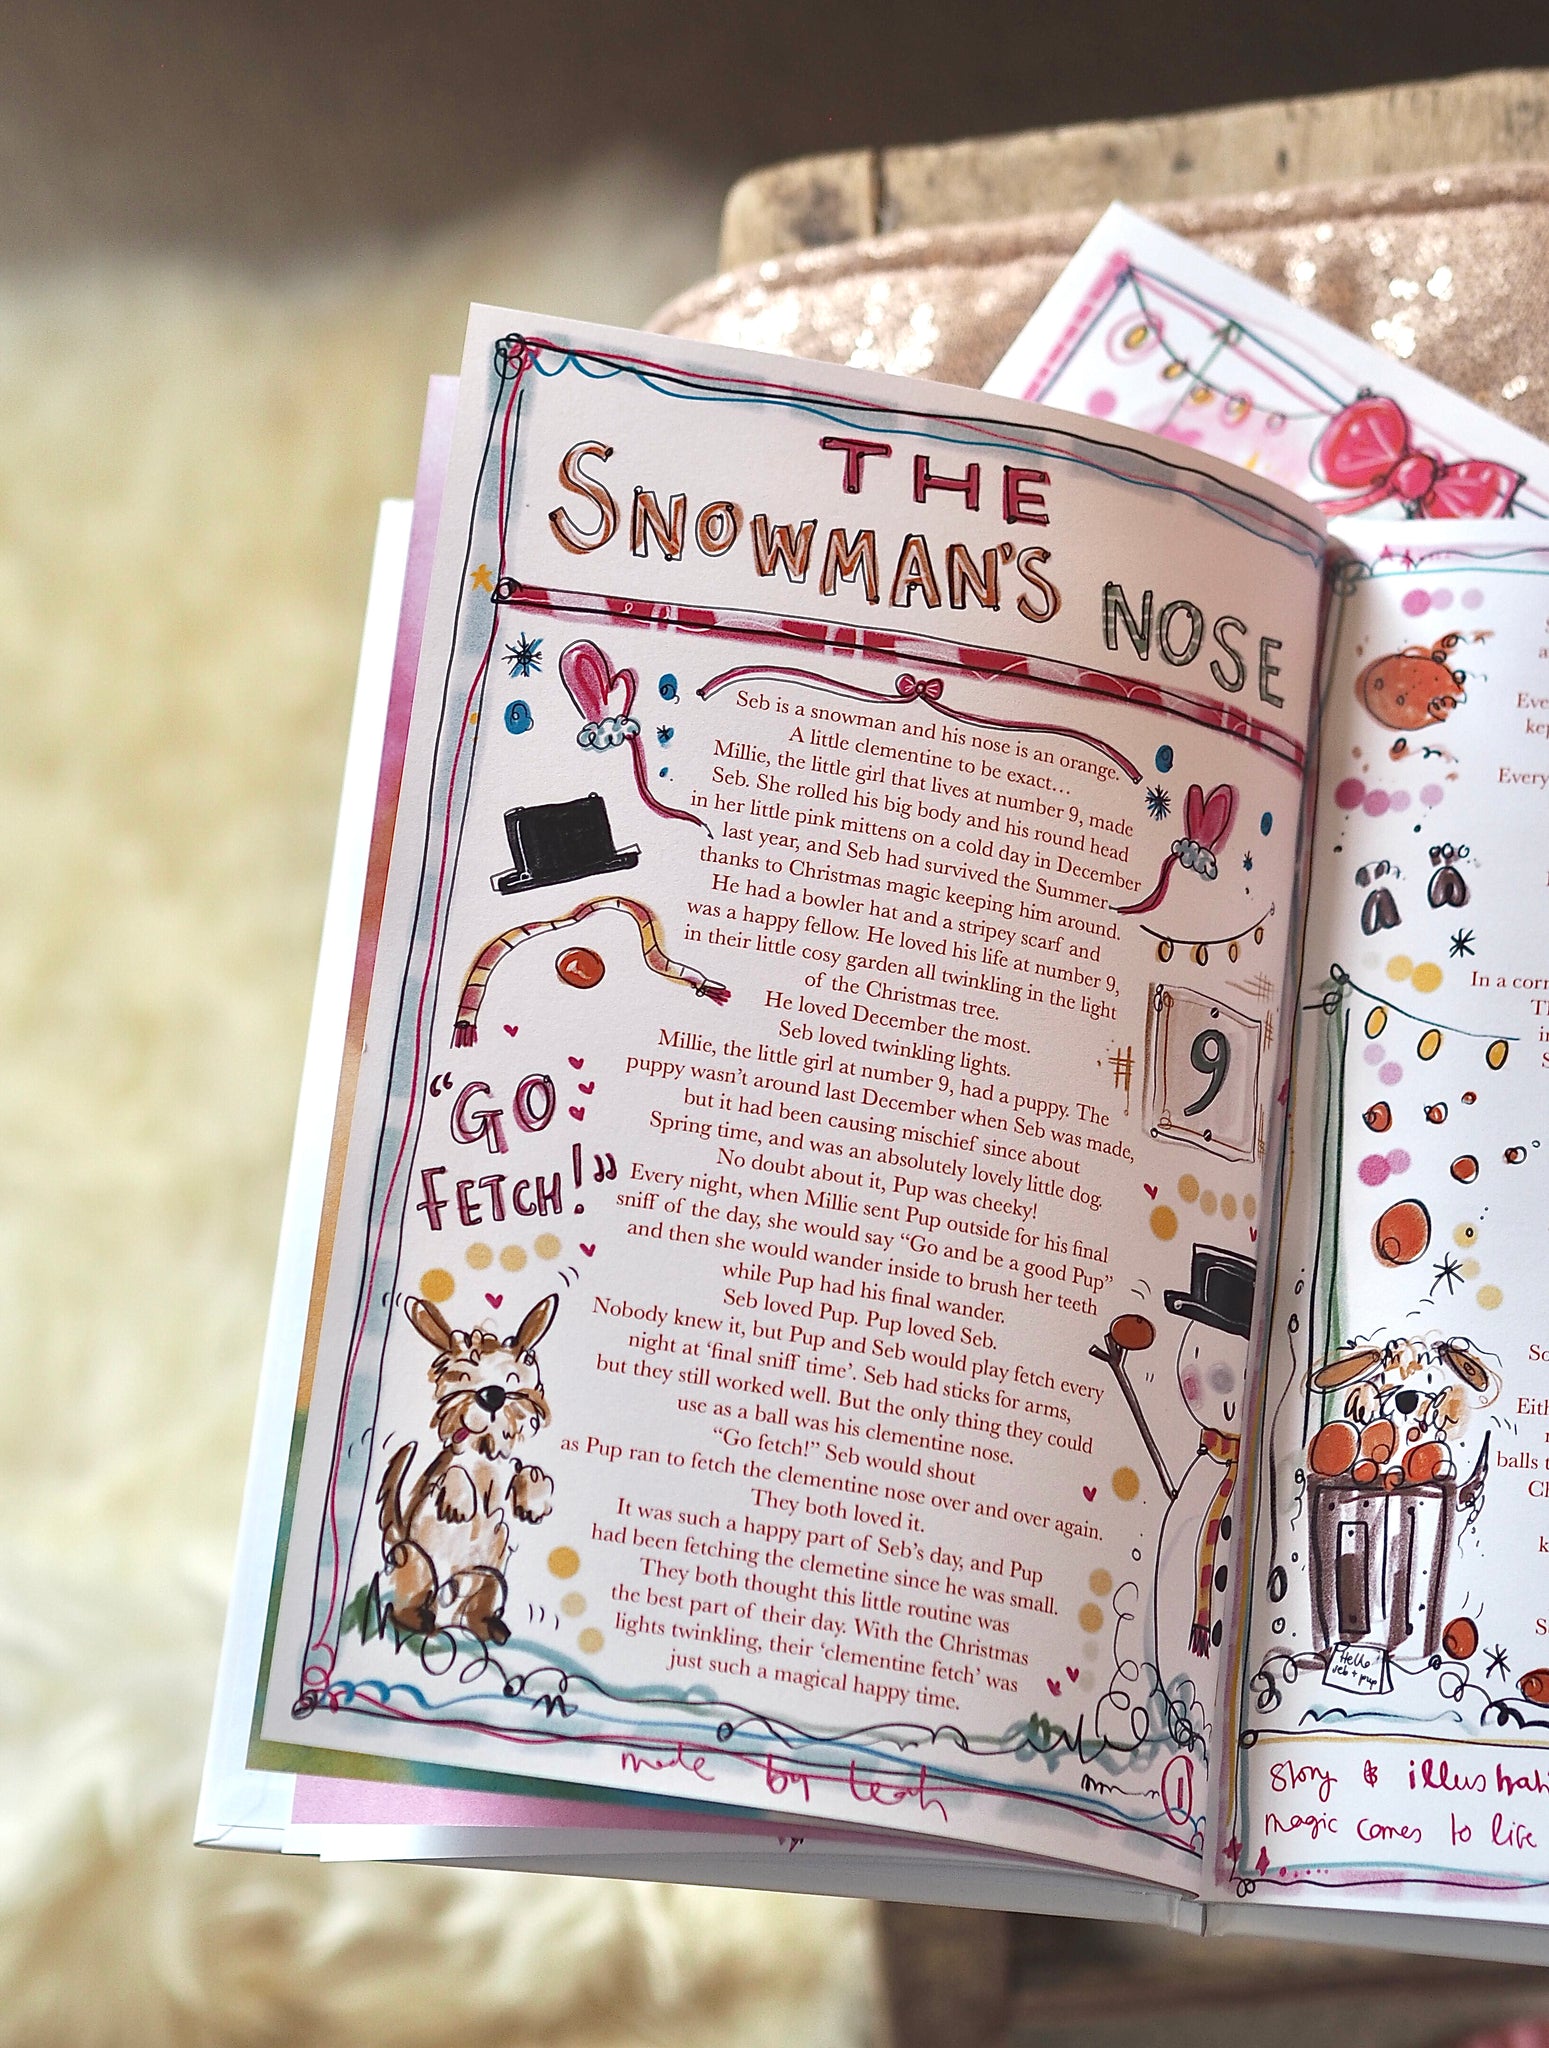 THE
SNOWMAN'S NOSE
Seb is a snowman and his nose is an orange.
A little clementine to be exact...
Millie, the little girl that lives at number 9, made
Seb. She rolled his big body and his round head
in her little pink mittens on a cold day in December
last year, and Seb had survived the Summer
thanks to Christmas magic keeping him around.
He had a bowler hat and a stripey scarf and
was a happy fellow. He loved his life at number 9,
in their little cosy garden all twinkling in the light
of the Christmas tree.
He loved December the most.
Seb loved twinkling lights.
Millie, the little girl at number 9, had a puppy. The
puppy wasn't around last December when Seb was made,
but it had been causing mischief since about
Spring time, and was an absolutely lovely little dog.
No doubt about it, Pup was cheeky!
Every night, when Millie sent Pup outside for his final
sniff of the day, she would say “Go and be a good Pup”
and then she would wander inside to brush her teeth
while Pup had his final wander.
Seb loved Pup. Pup loved Seb.
Nobody knew it, but Pup and Seb would play fetch every
night at ‘final sniff time’. Seb had sticks for arms,
but they still worked well. But the only thing they could
use as a ball was his clementine nose.
“Go fetch!” Seb would shout
as Pup ran to fetch the clementine nose over and over again.
They both loved it.
It was such a happy part of Seb's day, and Pup
had been fetching the clemetine since he was small.
They both thought this little routine was
the best part of their day. With the Christmas
lights twinkling, their ‘clementine fetch’ was
just such a magical happy time.
“GO
FETCH!”
9
made by leah
1
Every
In a corn
balls
Hello
seb + pup
story & illustrati
magic comes to life